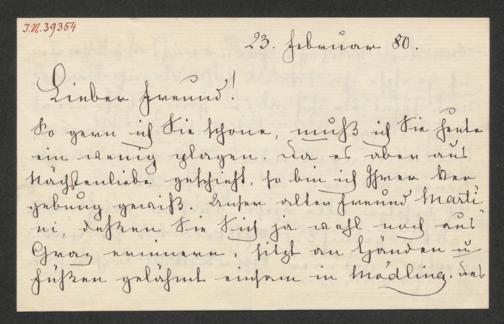 I.N. 39354
23. Februar 80.
Lieber Freund!
So gern ich Sie schone, muß ich Sie heute
ein wenig plagen. Da es aber aus
Nächstenliebe geschieht, so bin ich Ihrer Ver-
gebung gewiß. Unser alter Freund Marti-
ni, dessen Sie Sich ja wohl noch aus
Graz erinnern, sitzt an Händen u
Füßen gelähmt einsam in Mödling. Das